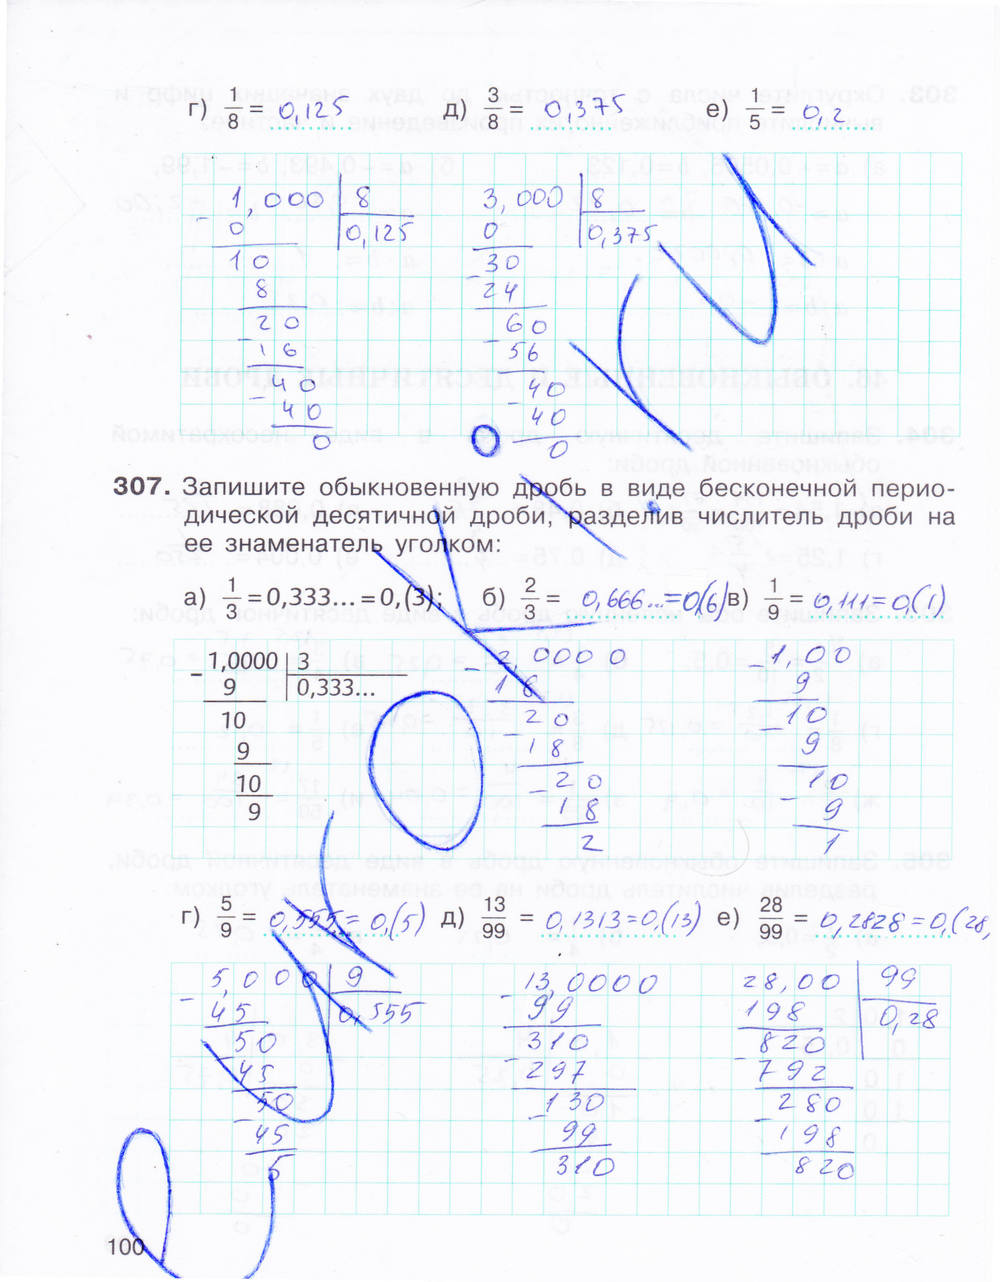 г) 1/8 = 0,125 д) 3/8 = 0,375 е) 1/5 = 0,2
1,000 | 8 3,000 | 8
- 0 | 0,125 0 | 0,375
10 - 30
8 24
20 60
- 16 - 56
40 40
- 40 - 40
0 0
307. Запишите обыкновенную дробь в виде бесконечной перио-
дической десятичной дроби, разделив числитель дроби на
ее знаменатель уголком:
а) 1/3 = 0,333... = 0,(3); б) 2/3 = 0,666... = 0,(6) в) 1/9 = 0,111 = 0,(1)
- 1,0000 | 3 - 2,0000 - 1,00
9 | 0,333... 18 9
10 20 10
9 - 18 - 9
10 20 10
9 - 18 - 9
2 1
г) 5/9 = 0,555 = 0,(5) д) 13/99 = 0,1313 = 0,(13) е) 28/99 = 0,2828 = 0,(28,
- 5,000 | 9 - 13,0000 28,00 | 99
45 | 0,555 99 198 | 0,28
50 310 820
- 45 - 297 - 792
50 130 280
- 45 - 99 - 198
5 310 820
100